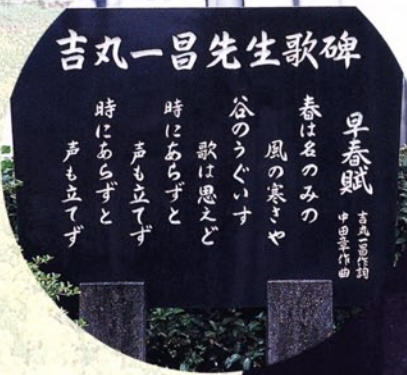 吉丸一昌先生歌碑
早春賦
吉丸一昌作詞
中田章作曲
春は名のみの
風の寒きや
谷のうぐいす
歌は思えど
時にあらずと
声も立てず
時にあらずと
声も立てず